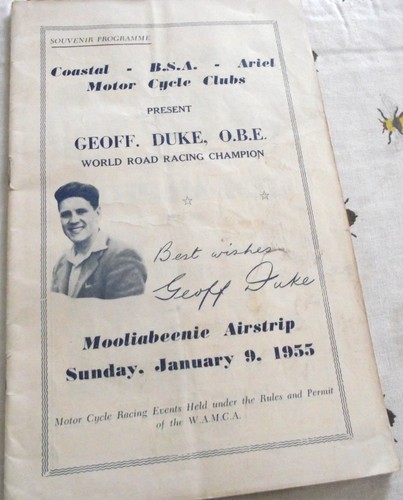 SOUVENIR PROGRAMME
Coastal - B.S.A. - Ariel
Motor Cycle Clubs
PRESENT
GEOFF. DUKE, O.B.E.
WORLD ROAD RACING CHAMPION
Best wishes
Geoff Duke
Mooliabeenie Airstrip
Sunday, January 9, 1955
Motor Cycle Racing Events Held under the Rules and Permit
of the W.A.M.C.A.